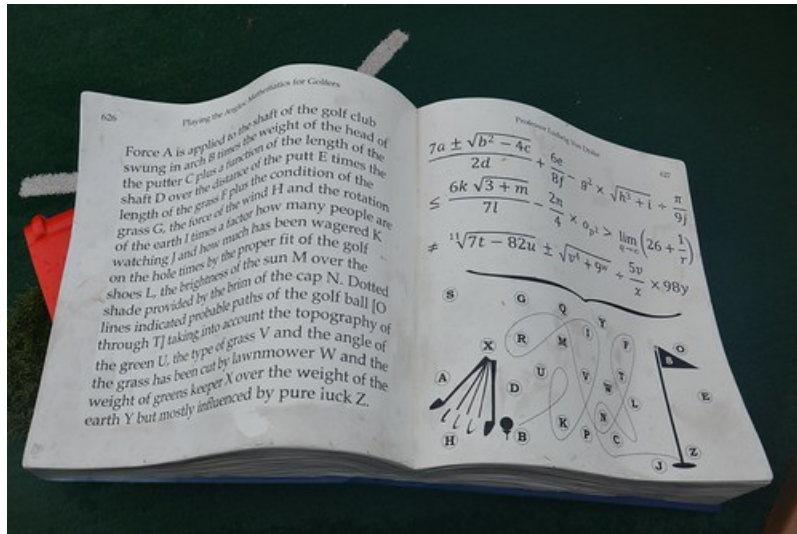 626
Playing the Angles: Mathematics for Golfers
Force A is applied to the shaft of the golf club
swung in arch B times the weight of the head of
the putter C plus a function of the length of the
shaft D over the distance of the putt E times the
length of the grass F plus the condition of the
grass G, the force of the wind H and the rotation
of the earth I times a factor how many people are
watching J and how much has been wagered K
on the hole times by the proper fit of the golf
shoes L, the brightness of the sun M over the
shade provided by the brim of the cap N. Dotted
lines indicated probable paths of the golf ball [O
through T] taking into account the topography of
the green U, the type of grass V and the angle of
the grass has been cut by lawnmower W and the
weight of greens keeper X over the weight of the
earth Y but mostly influenced by pure luck Z.
Professor Ludwig Von Drake
627
7a ± √b² − 4c / 2d + 6e / 8f − g² × √h³ + i ÷ π / 9j
≤ 6k √3 + m / 7l − 2n / 4 × o p² > lim q→∞ (26 + 1 / r)
≠ ¹¹√7t − 82u ± √v⁴ + 9ʷ ÷ 5v / x × 98y
S G Q Y
R M I F O
X 8
A D U V W T E
L
H B K P N C J Z